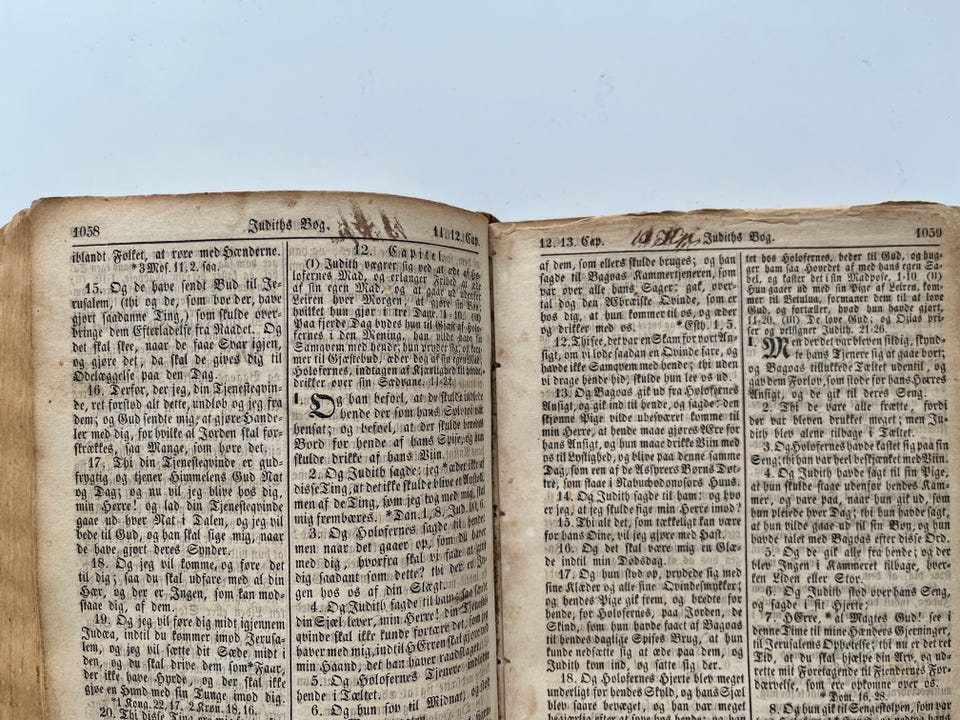 1058 Judiths Bog. 11. 12. Cap.
iblandt Folket, at røre med Hænderne.
*3 Mos. 11, 2. faa.
15. Og de have sendt Bud til Je-
rusalem, (thi og de, som boe der, have
gjort saadanne Ting,) som skulde over-
bringe dem Efterladelse fra Raadet. Og
det skal skee, naar de faae Svar igjen,
og gjøre det, da skal de gives dig til
Ødelæggelse paa den Dag.
16. Derfor, der jeg, din Tjenesteqvin-
de, ret forstod alt dette, undløb og jeg fra
dem; og Gud sendte mig, at gjøre Hande-
ler med dig, for hvilke al Jorden skal for-
strækkes, saa Mange, som høre det.
17. Thi din Tjenesteqvinde er gud-
frygtig og tjener Himmelens Gud Nat
og Dag; og nu vil jeg blive hos dig,
min Herre! og lad din Tjenesteqvinde
gaae ud hver Nat i Dalen, og jeg vil
bede til Gud, og han skal sige mig, naar
de have gjort deres Synder.
18. Og jeg vil komme, og føre det
til dig; saa du skal udfare med al din
Hær, og der er Ingen, som kan mod-
staae dig, af dem.
19. Og jeg vil føre dig midt igjennem
Judæa, indtil du kommer imod Jerusa-
lem, og jeg vil sætte dit Sæde midt i
den, og du skal drive dem som *Faar,
der ikke have Hyrde, og der skal ikke
gjøe en Hund med sin Tunge imod dig.
*1 Kong. 22, 17. 2 Krøn. 18, 16.
20. Thi disse Ting
12. Capitel.
(I) Judith vægrer sig ved at æde af Ho-
lofernes Mad, og erlanger Frihed at æde
af sin egen Mad, og at gaae ud udenfor
Leiren hver Morgen, at gjøre sin Bøn,
hvilket hun gjør i tre Dage, 1-10. (II)
Paa fjerde Dag bydes hun til Gjæst af Holo-
fernes i den Mening, han vilde have sit
Samqvem med hende; hun pryder sig, og kom-
mer til Gjæstebud, æder dog af sin egen Mad;
Holofernes, indtagen af Kjærlighed til hende,
drikker over sin Sædvane. 11-22.
1. Og han befoel, at de skulde indlede
hende der som hans Sølvtøi var
hensat; og befoel, at der skulde bredes
Bord for hende af hans Spise, og hun
skulde drikke af hans Viin.
2. Og Judith sagde: jeg *æder ikke af
disse Ting, at det ikke skulde blive et Anstød,
men af de Ting, som jeg tog med mig, skal
mig frembæres. *Dan. 1, 8. Jud. 10, 6.
3. Og Holofernes sagde til hende:
men naar det gaaer op, som du haver
med dig, hvorfra skal vi faae at give
dig saadant som dette? thi der er In-
gen hos os af din Slægt.
4. Og Judith sagde til ham: saa vist som
din Sjel lever, min Herre! din Tjeneste-
qvinde skal ikke kunde fortære det, som jeg
haver med mig, indtil HErren skal gjøre ved
min Haand, det han haver raadslaget.
5. Og Holofernes Tjenere indledte
hende i Tæltet.
6. Og hun sov til Midnat, og stod
12. 13. Cap. Judiths Bog. 1059
af dem, som ellers skulde bruges; og han
sagde til Bagoas Kammertjeneren, som
var over alle hans Sager: gak, over-
tal dog den Ebræiske Qvinde, som er
hos dig, at hun kommer til os, og æder
og drikker med os. *Esth. 1, 5.
12. Thi see, det var en Skam for vort An-
sigt, om vi lode saadan en Qvinde fare, og
havde ikke Samqvem med hende; thi dersom
vi drage hende bid, skulde hun lee os ud.
13. Og Bagoas gik ud fra Holofernes
Ansigt, og gik ind til hende, og sagde: den
skjønne Pige vilde ubesværet komme til
min Herre, at hende maae gjøres Ære for
hans Ansigt, og hun maae drikke Viin med
os til Lystighed, og blive paa denne samme
Dag, som een af de Assyrers Børns Døt-
tre, som staae i Nabuchodonosors Huus.
14. Og Judith sagde til ham: og hvo
er jeg, at jeg skulde sige min Herre imod?
15. Thi alt det, som tækkeligt kan være
for hans Øine, vil jeg gjøre med Hast.
16. Og det skal være mig en Glæ-
de indtil min Dødsdag.
17. Og hun stod op, prydede sig med
sine Klæder og alle sine Qvindesmykker;
og hendes Pige gik frem, og bredte for
hende, for Holofernes, paa Jorden, de
Skind, som hun havde faaet af Bagoas
til hendes daglige Spises Brug, at hun
kunde nedsætte sig at æde paa dem, og
Judith kom ind, og satte sig der.
18. Og Holofernes Hjerte blev meget
underligt for hendes Skyld, og hans Sjæl
blev saare bevæget, og han var meget
begjærlig efter at
tet hos Holofernes, beder til Gud, og hug-
ger ham saa Hovedet af med hans egen Sa-
bel, og kaster det i sin Madpose, 1-10. (II)
Hun gaaer ud med sin Pige af Leiren, kom-
mer til Betulua, formaner dem til at love
Gud, og fortæller, hvad hun havde gjort,
11-20. (III) De love Gud; og Ozias pri-
ser og velsigner Judith. 21-26.
1. Men der det var bleven sildig, skynd-
te hans Tjenere sig at gaae bort;
og Bagoas tillukkede Tæltet udentil, og
gav dem Forlov, som stode for hans Herres
Ansigt, og de gik til deres Seng.
2. Thi de vare alle trætte, fordi
der var bleven drukket meget; men Ju-
dith blev alene tilbage i Tæltet.
3. Og Holofernes havde kastet sig paa sin
Seng; thi han var heel beskjænket med Viin.
4. Og Judith havde sagt til sin Pige,
at hun skulde staae udenfor hendes Kam-
mer, og vare paa, naar hun gik ud, som
hun pleiede hver Dag; thi hun havde sagt,
at hun vilde gaae ud til sin Bøn, og hun
havde talet med Bagoas efter disse Ord.
5. Og de gik alle fra hende; og der
blev Ingen i Kammeret tilbage, hver-
ken Liden eller Stor.
6. Og Judith stod over hans Seng,
og sagde i sit Hjerte:
7. HErre, *al Magtes Gud! see i
denne Time til mine Hænders Gjerninger,
til Jerusalems Ophøielse; thi nu er det ret
Tid, at du skal hjælpe din Arv, og ud-
rette mit Forelagende til Fiendernes For-
dærvelse, som ere opkomne over os.
*Dom. 16, 28.
8. Og hun gik til Sengestolpen, som var